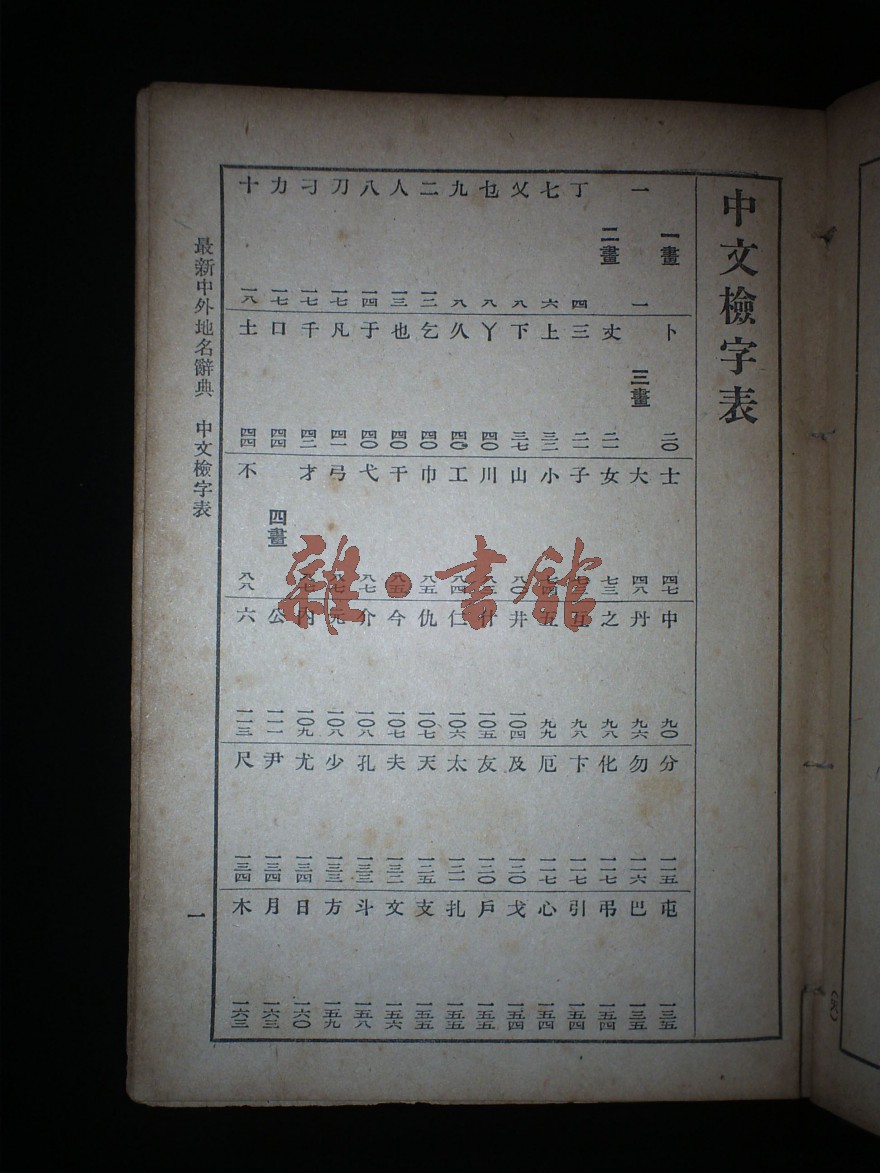 中文檢字表
一畫
一 一
二畫
丁 四
七 六
乂 八
乜 八
九 八
二 一二
人 一三
八 一四
刀 一七
刁 一七
力 一七
十 一八
卜 二〇
三畫
丈 二一
三 二一
上 三二
下 三七
丫 四〇
久 四〇
乞 四〇
也 四〇
于 四〇
凡 四一
千 四二
口 四四
土 四四
士 四七
大 四八
女 七三
子
小 七四
山 八〇
川
工 八四
巾 八五
干 八五
弋 八七
弓 八七
才 八七
四畫
不 八八
中 九〇
丹 九六
之 九八
互 九八
五 九九
井 一〇四
什 一〇五
仁 一〇六
仇 一〇七
今 一〇七
介 一〇八
元 一〇八
內 一〇九
公 一一一
六 一一三
分 一一五
勿 一一六
化 一一七
卞 一一七
厄 一一七
及 一二〇
友 一二〇
太 一二一
天 一二五
夫 一三二
孔 一三三
少 一三三
尤 一三四
尹 一三四
尺 一三四
屯 一三五
巴 一三五
弔 一五四
引 一五四
心 一五四
戈 一五四
戶 一五五
扎 一五五
支 一五五
文 一五六
斗 一五八
方 一五九
日 一六〇
月 一六三
木 一六三
最新中外地名辭典 中文檢字表 一
雜·書館